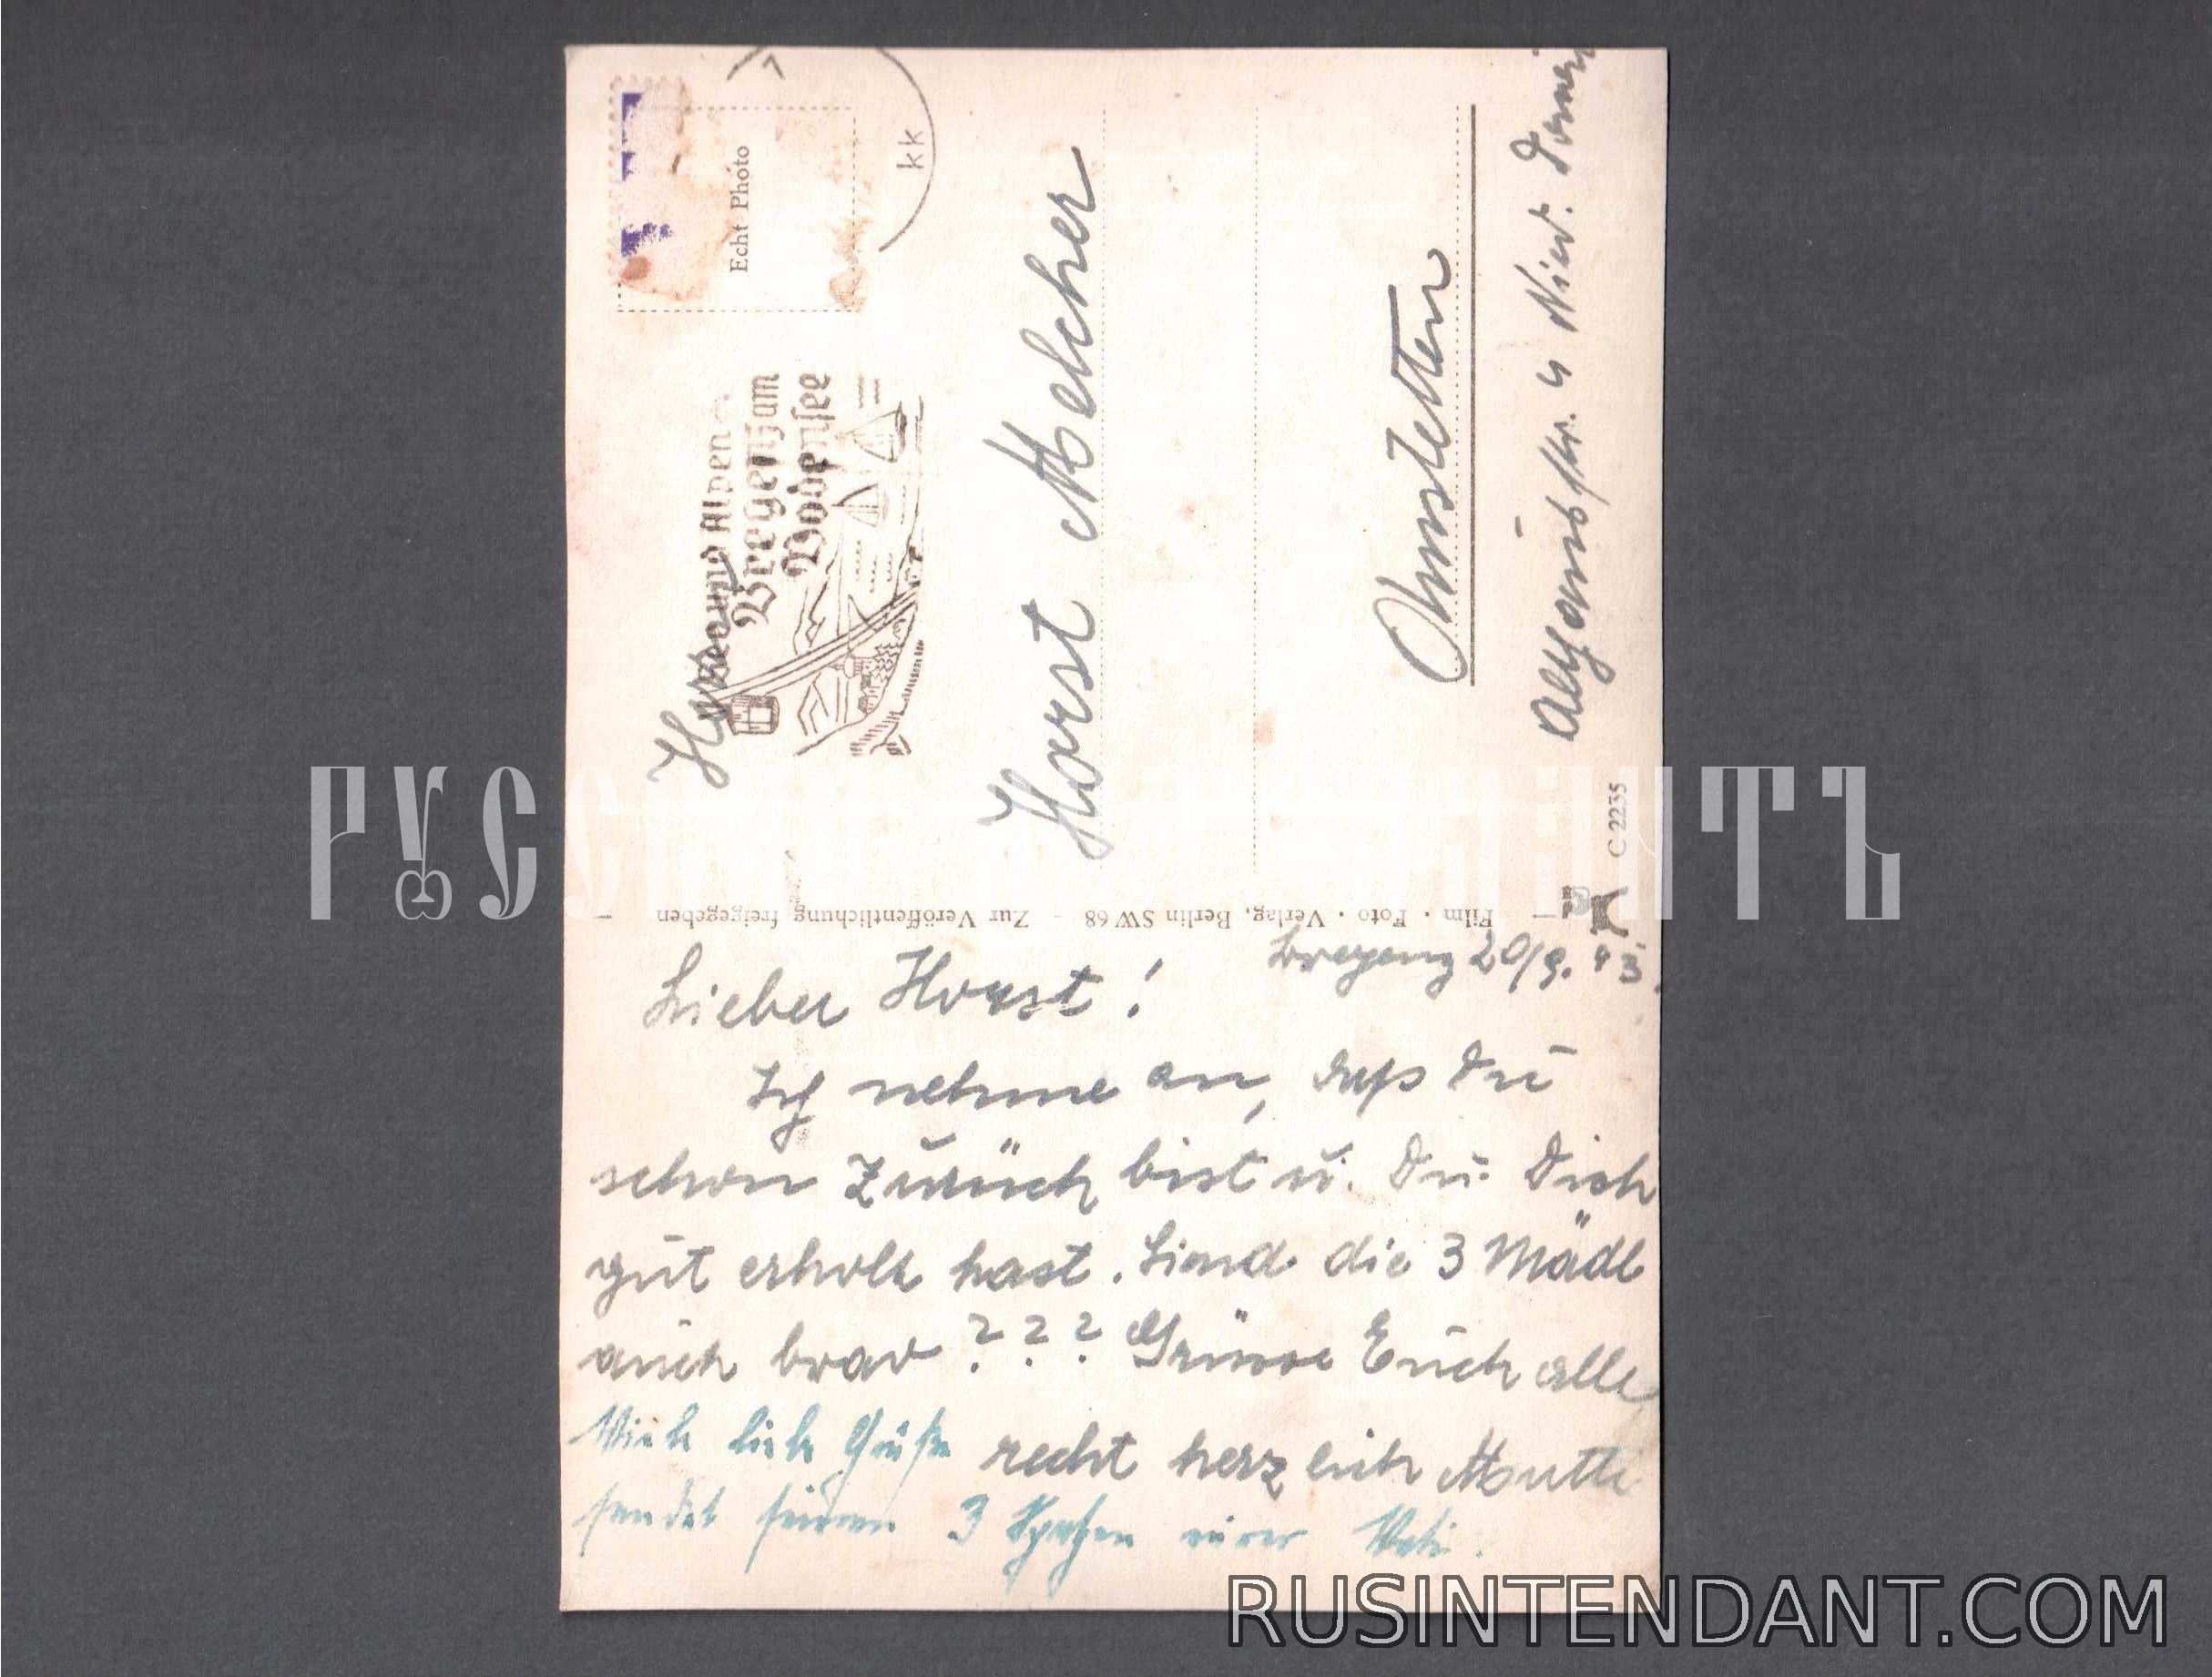 Echt Photo
kk
See und Alpen
Bregenz am
Bodensee
Horst Melcher
Amstetten
4 Nied. Donau
Film · Foto · Verlag, Berlin SW 68 – Zur Veröffentlichung freigegeben
C 2235
Bregenz 20/9. 43.
Lieber Horst!
Ich nehme an, daß Du
schon zurück bist u. Du Dich
gut erholt hast. Sind die 3 Mädl
auch brav ??? Grüsse Euch alle
recht herzlich Mutti
Viele liebe Grüße
sendet seinen 3 Spatzen eurer Vati.
РУСС
НТЪ
RUSINTENDANT.COM